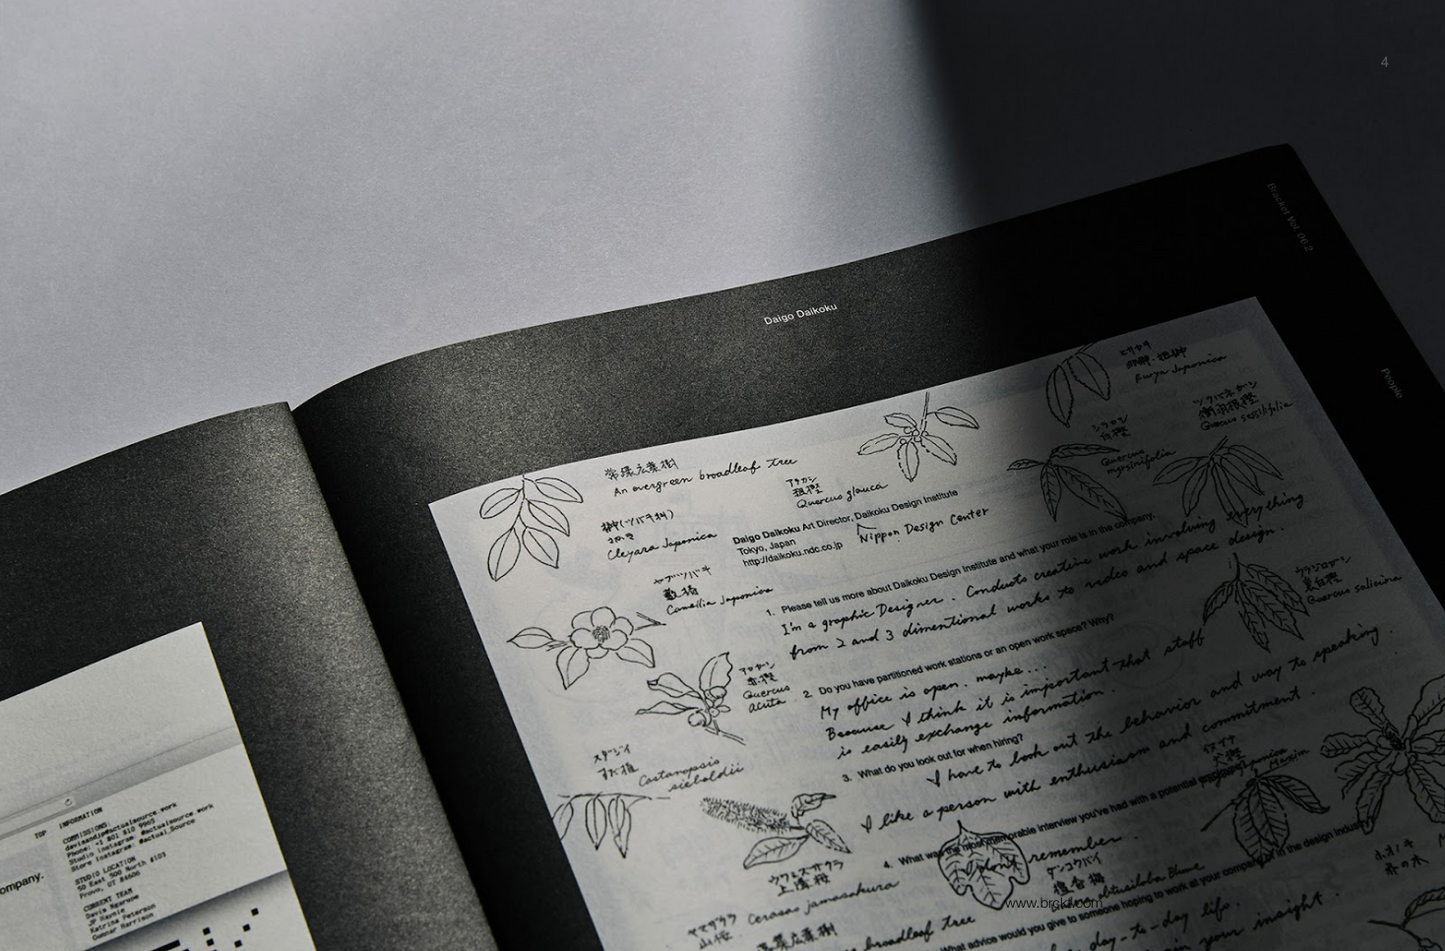 4
Bracket Vol. 06.2
People
Daigo Daikoku
ヒサカキ
Eurya Japonica
ツクバネガシ
衝羽根樫
Quercus sessilifolia
シラカシ
白樫
Quercus
myrsinifolia
常緑広葉樹
An evergreen broadleaf tree
アラカシ
粗樫
Quercus glauca
榊(ツバキ科)
Cleyara Japonica
Daigo Daikoku Art Director, Daikoku Design Institute
Nippon Design Center
Tokyo, Japan
http://daikoku.ndc.co.jp
ヤブツバキ
藪椿
Camellia Japonica
1. Please tell us more about Daikoku Design Institute and what your role is in the company.
I'm a graphic Designer. Conducts creative work involving everything
from 2 and 3 dimentional works to video and space design.
ウラジロガシ
裏白樫
Quercus salicina
アカガシ
赤樫
Quercus
acuta
2. Do you have partitioned work stations or an open work space? Why?
My office is open. maybe...
Because I think it is important that staff
is easily exchange information.
スダジイ
Castanopsis
sieboldii
3. What do you look out for when hiring?
I have to look out the behavior and way to speaking.
I like a person with enthusiasm and commitment.
イヌナ
4. What was the most memorable interview you've had with a potential
remember
ウワミズザクラ
上溝桜
ダンコウバイ
檀香梅
obtusiloba Blume
ホオノキ
朴の木
ヤマザクラ
山桜
Cerasus jamasakura
落葉広葉樹
broadleaf tree
What advice would you give to someone hoping to work at your company or in the design industry
day-to-day life.
in your insight.
www.brckt.com
TOP INFORMATION
COMMISSIONS:
davisandjp@actualsource.work
Phone: +1 801 810 9965
Studio Instagram: @actualsource.work
Store Instagram: @actual_source
STUDIO LOCATION
50 East 500 North #103
Provo, UT 84606
CURRENT TEAM
Davis Ngarupe
JP Haynie
Katrina Peterson
Gunnar Harrison
ompany.